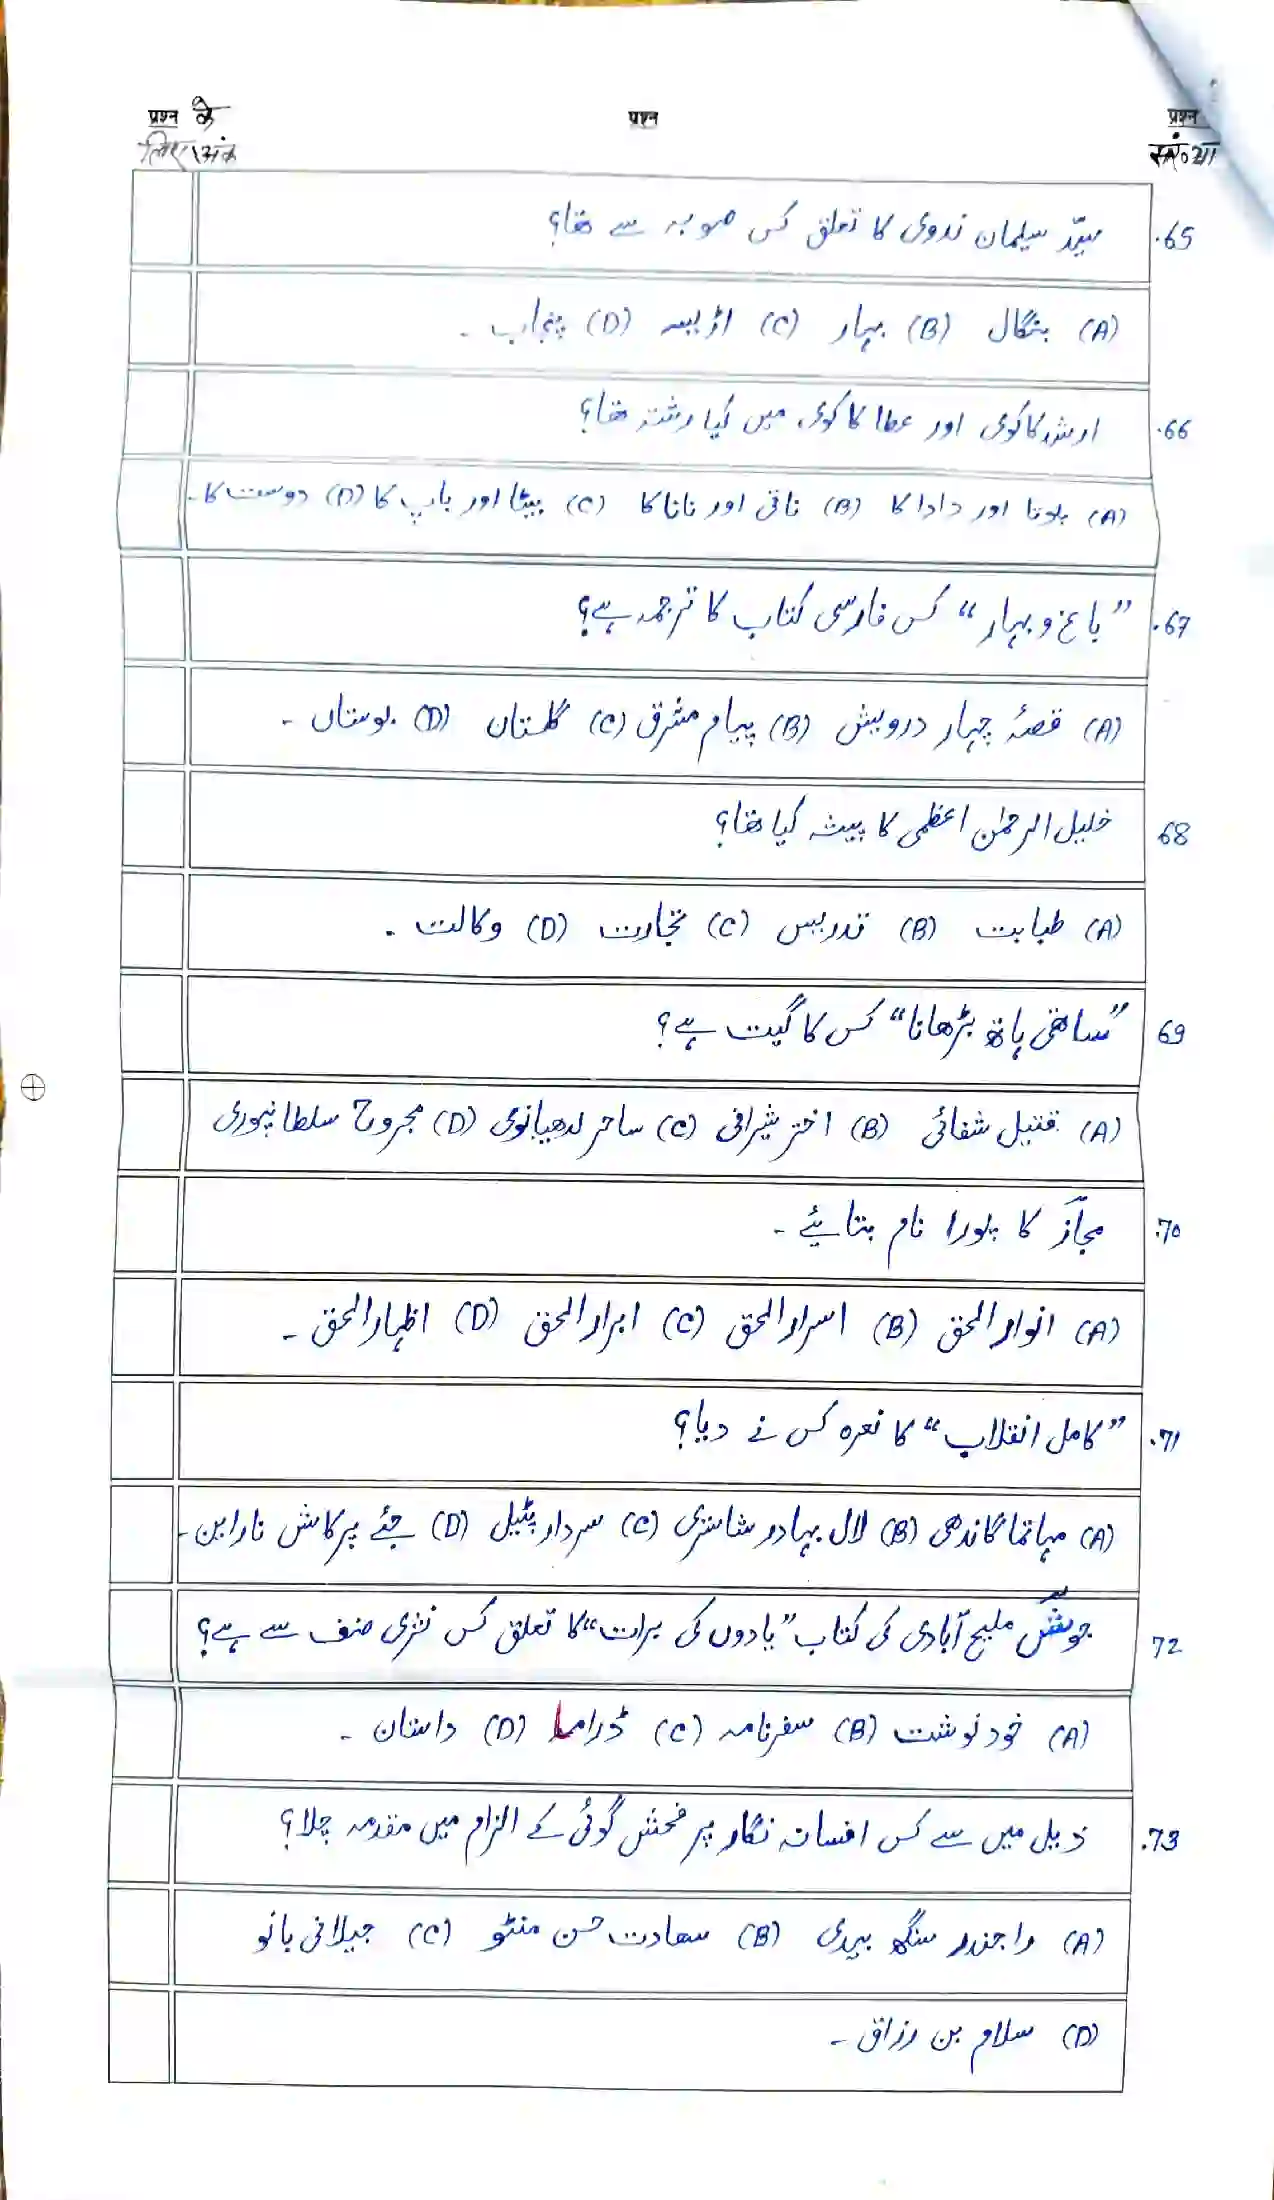 प्रश्न के लिए अंक	प्रश्न	प्रश्न सं०या
65. سیّد سلیمان ندوی کا تعلق کس صوبہ سے تھا؟
(A) بنگال (B) بہار (C) اڑیسہ (D) پنجاب ۔
66. ارشد کاکوی اور عطا کاکوی میں کیا رشتہ تھا؟
(A) پوتا اور دادا کا (B) ناتی اور نانا کا (C) بیٹا اور باپ کا (D) دوست کا۔
67. ”باغ و بہار“ کس فارسی کتاب کا ترجمہ ہے؟
(A) قصۂ چہار درویش (B) پیام مشرق (C) گلستان (D) بوستاں ۔
68 خلیل الرحمٰن اعظمی کا پیشہ کیا تھا؟
(A) طبابت (B) تدریس (C) تجارت (D) وکالت ۔
69 ”ساتھی ہاتھ بڑھانا“ کس کا گیت ہے؟
(A) قتیل شفائی (B) اختر شیرانی (C) ساحر لدھیانوی (D) مجروح سلطانپوری
70. مجاز کا پورا نام بتائیے ۔
(A) انوار الحق (B) اسرار الحق (C) ابرار الحق (D) اظہار الحق ۔
71. ”کامل انقلاب“ کا نعرہ کس نے دیا؟
(A) مہاتما گاندھی (B) لال بہادر شاستری (C) سردار پٹیل (D) جئے پرکاش نارائن ۔
72 جوش ملیح آبادی کی کتاب ”یادوں کی برات“ کا تعلق کس نثری صنف سے ہے؟
(A) خود نوشت (B) سفرنامہ (C) ڈراما (D) داستان ۔
73. ذیل میں سے کس افسانہ نگار پر فحش گوئی کے الزام میں مقدمہ چلا؟
(A) راجندر سنگھ بیدی (B) سعادت حسن منٹو (C) جیلانی بانو
(D) سلام بن رزاق ۔